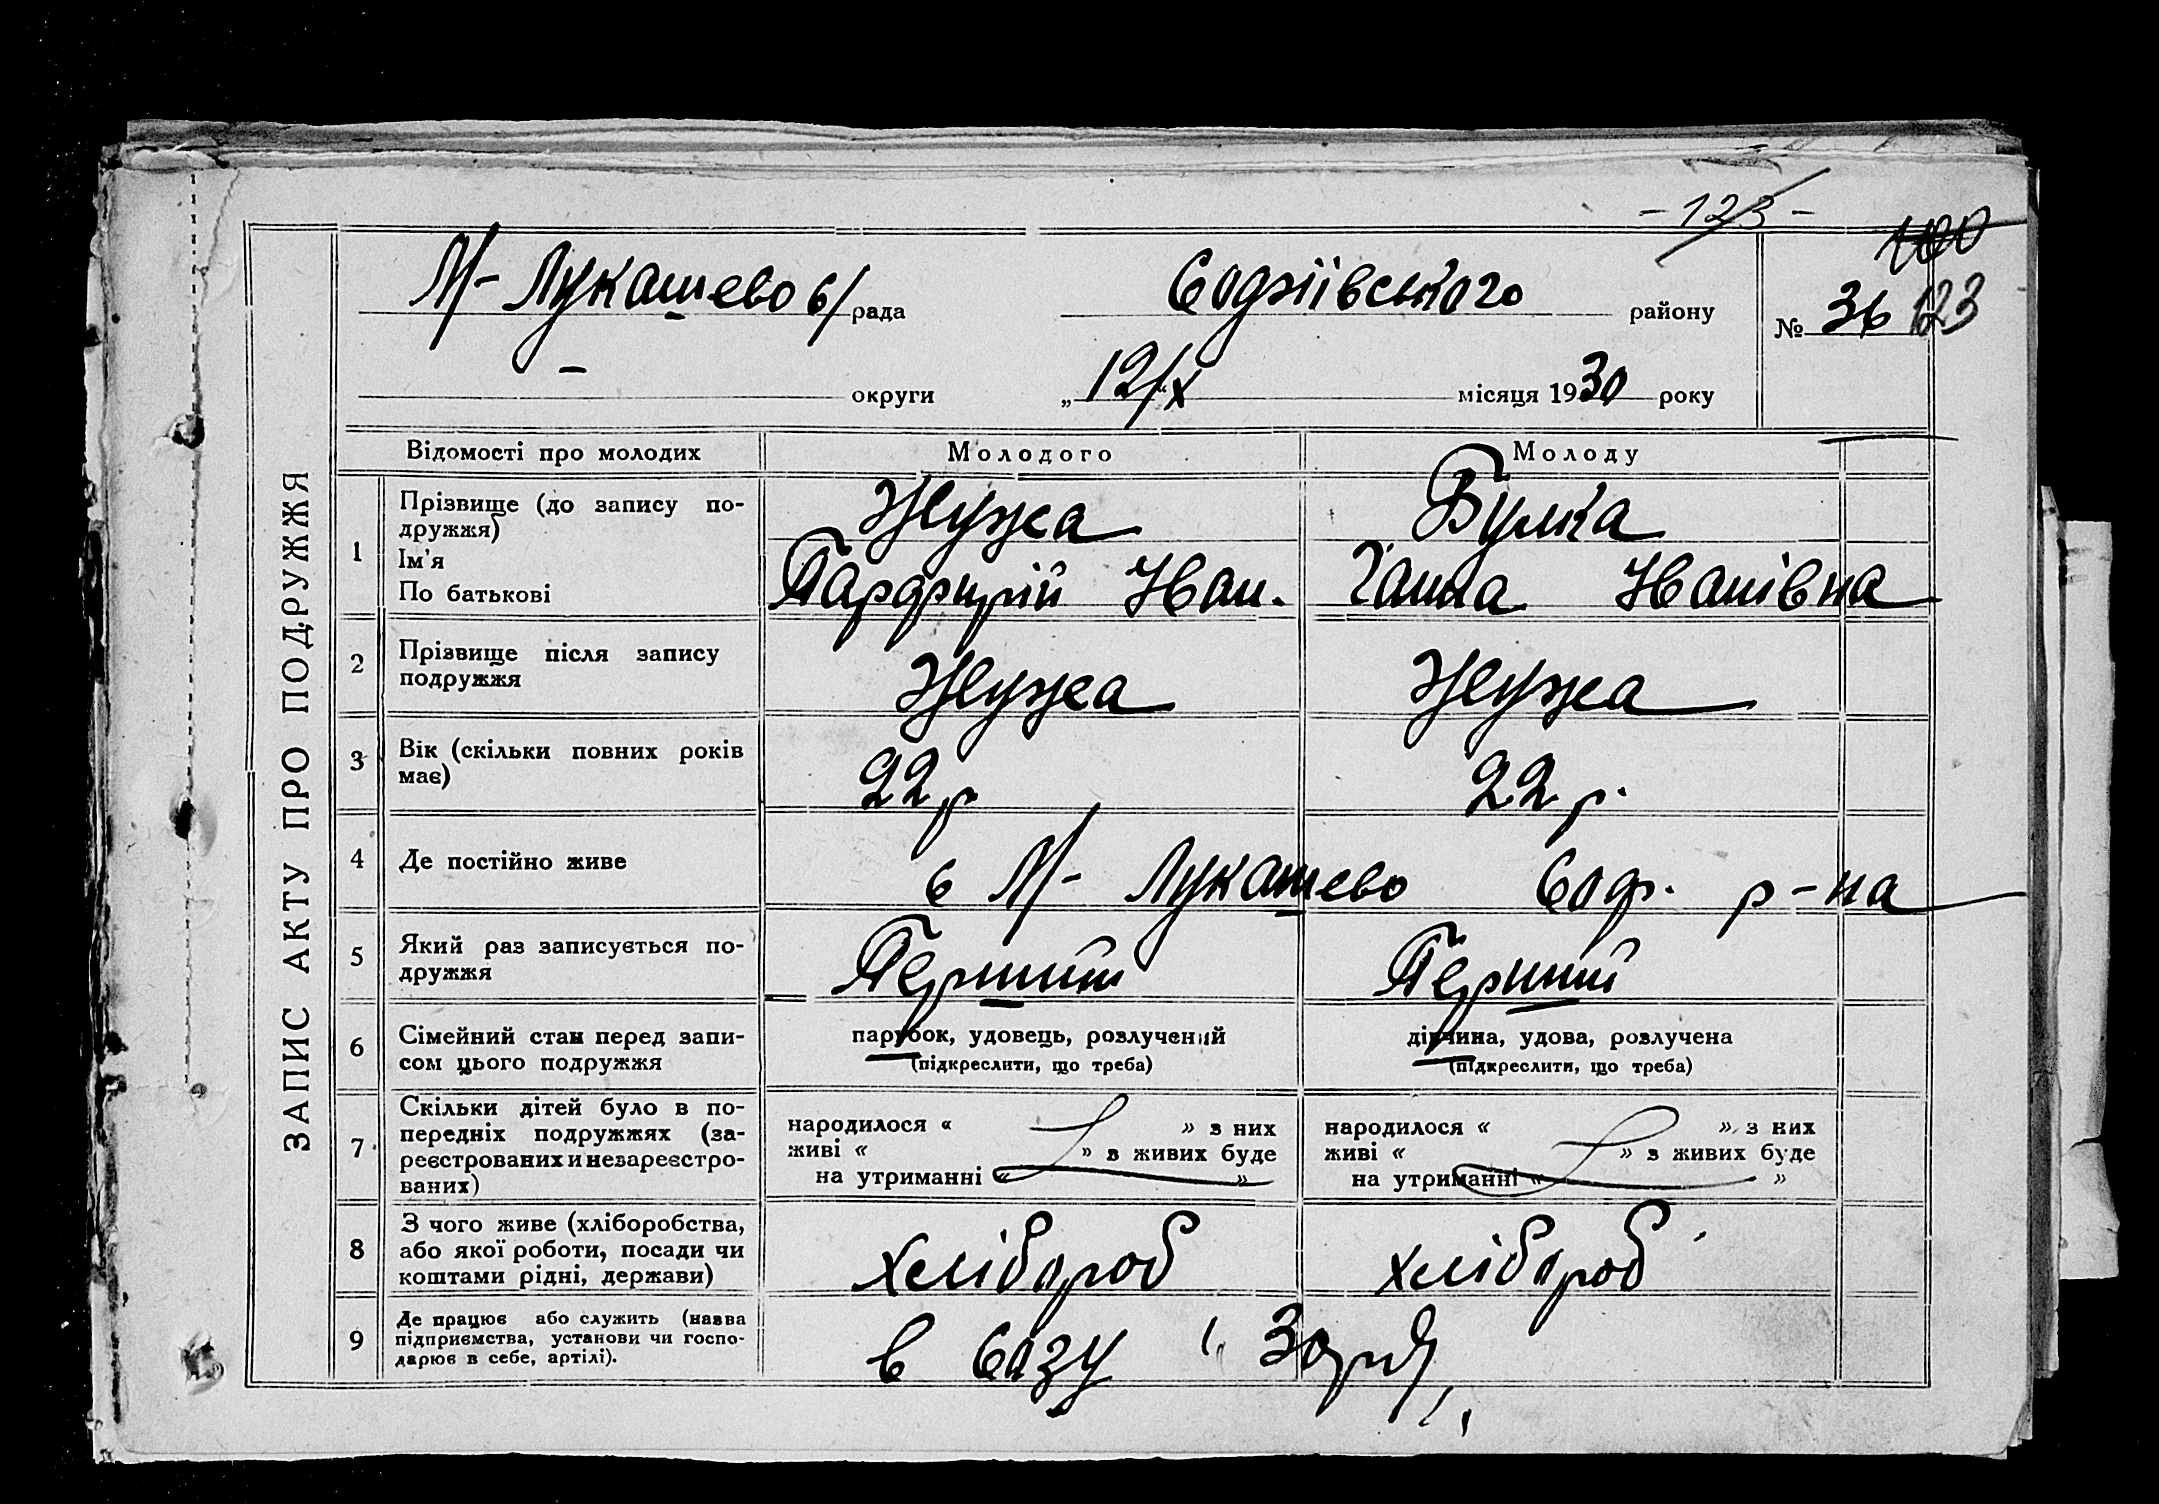 - 123 -
100
М-Лукашево с/рада Софіївського району № 36 123
- округи „12/X місяця 1930 року
ЗАПИС АКТУ ПРО ПОДРУЖЖЯ
Відомості про молодих Молодого Молоду
1 Прізвище (до запису по-
дружжя) Жужа Булка
Ім'я
По батькові Парфирій Іван. Ганна Іванівна
2 Прізвище після запису
подружжя Жужа Жужа
3 Вік (скільки повних років
має) 22 р 22 р.
4 Де постійно живе с М-Лукашево Соф. р-на
5 Який раз записується по-
дружжя Перший Перший
6 Сімейний стан перед запи-
сом цього подружжя
парубок, удовець, розлучений
(підкреслити, що треба)
дівчина, удова, розлучена
(підкреслити, що треба)
7 Скільки дітей було в по-
передніх подружжях (за-
реєстрованих и незареєстро-
ваних)
народилося « » з них
живі « » з живих буде
на утриманні « »
народилося « » з них
живі « » з живих буде
на утриманні « »
8 З чого живе (хліборобства,
або якої роботи, посади чи
коштами рідні, держави) хлібороб хлібороб
9 Де працює або служить (назва
підприємства, установи чи госпо-
дарює в себе, артілі).
в созу "Зоря"